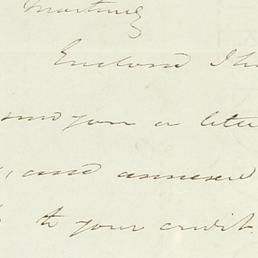 Enclosed I h
send you a lette
, and annexed
to your credit